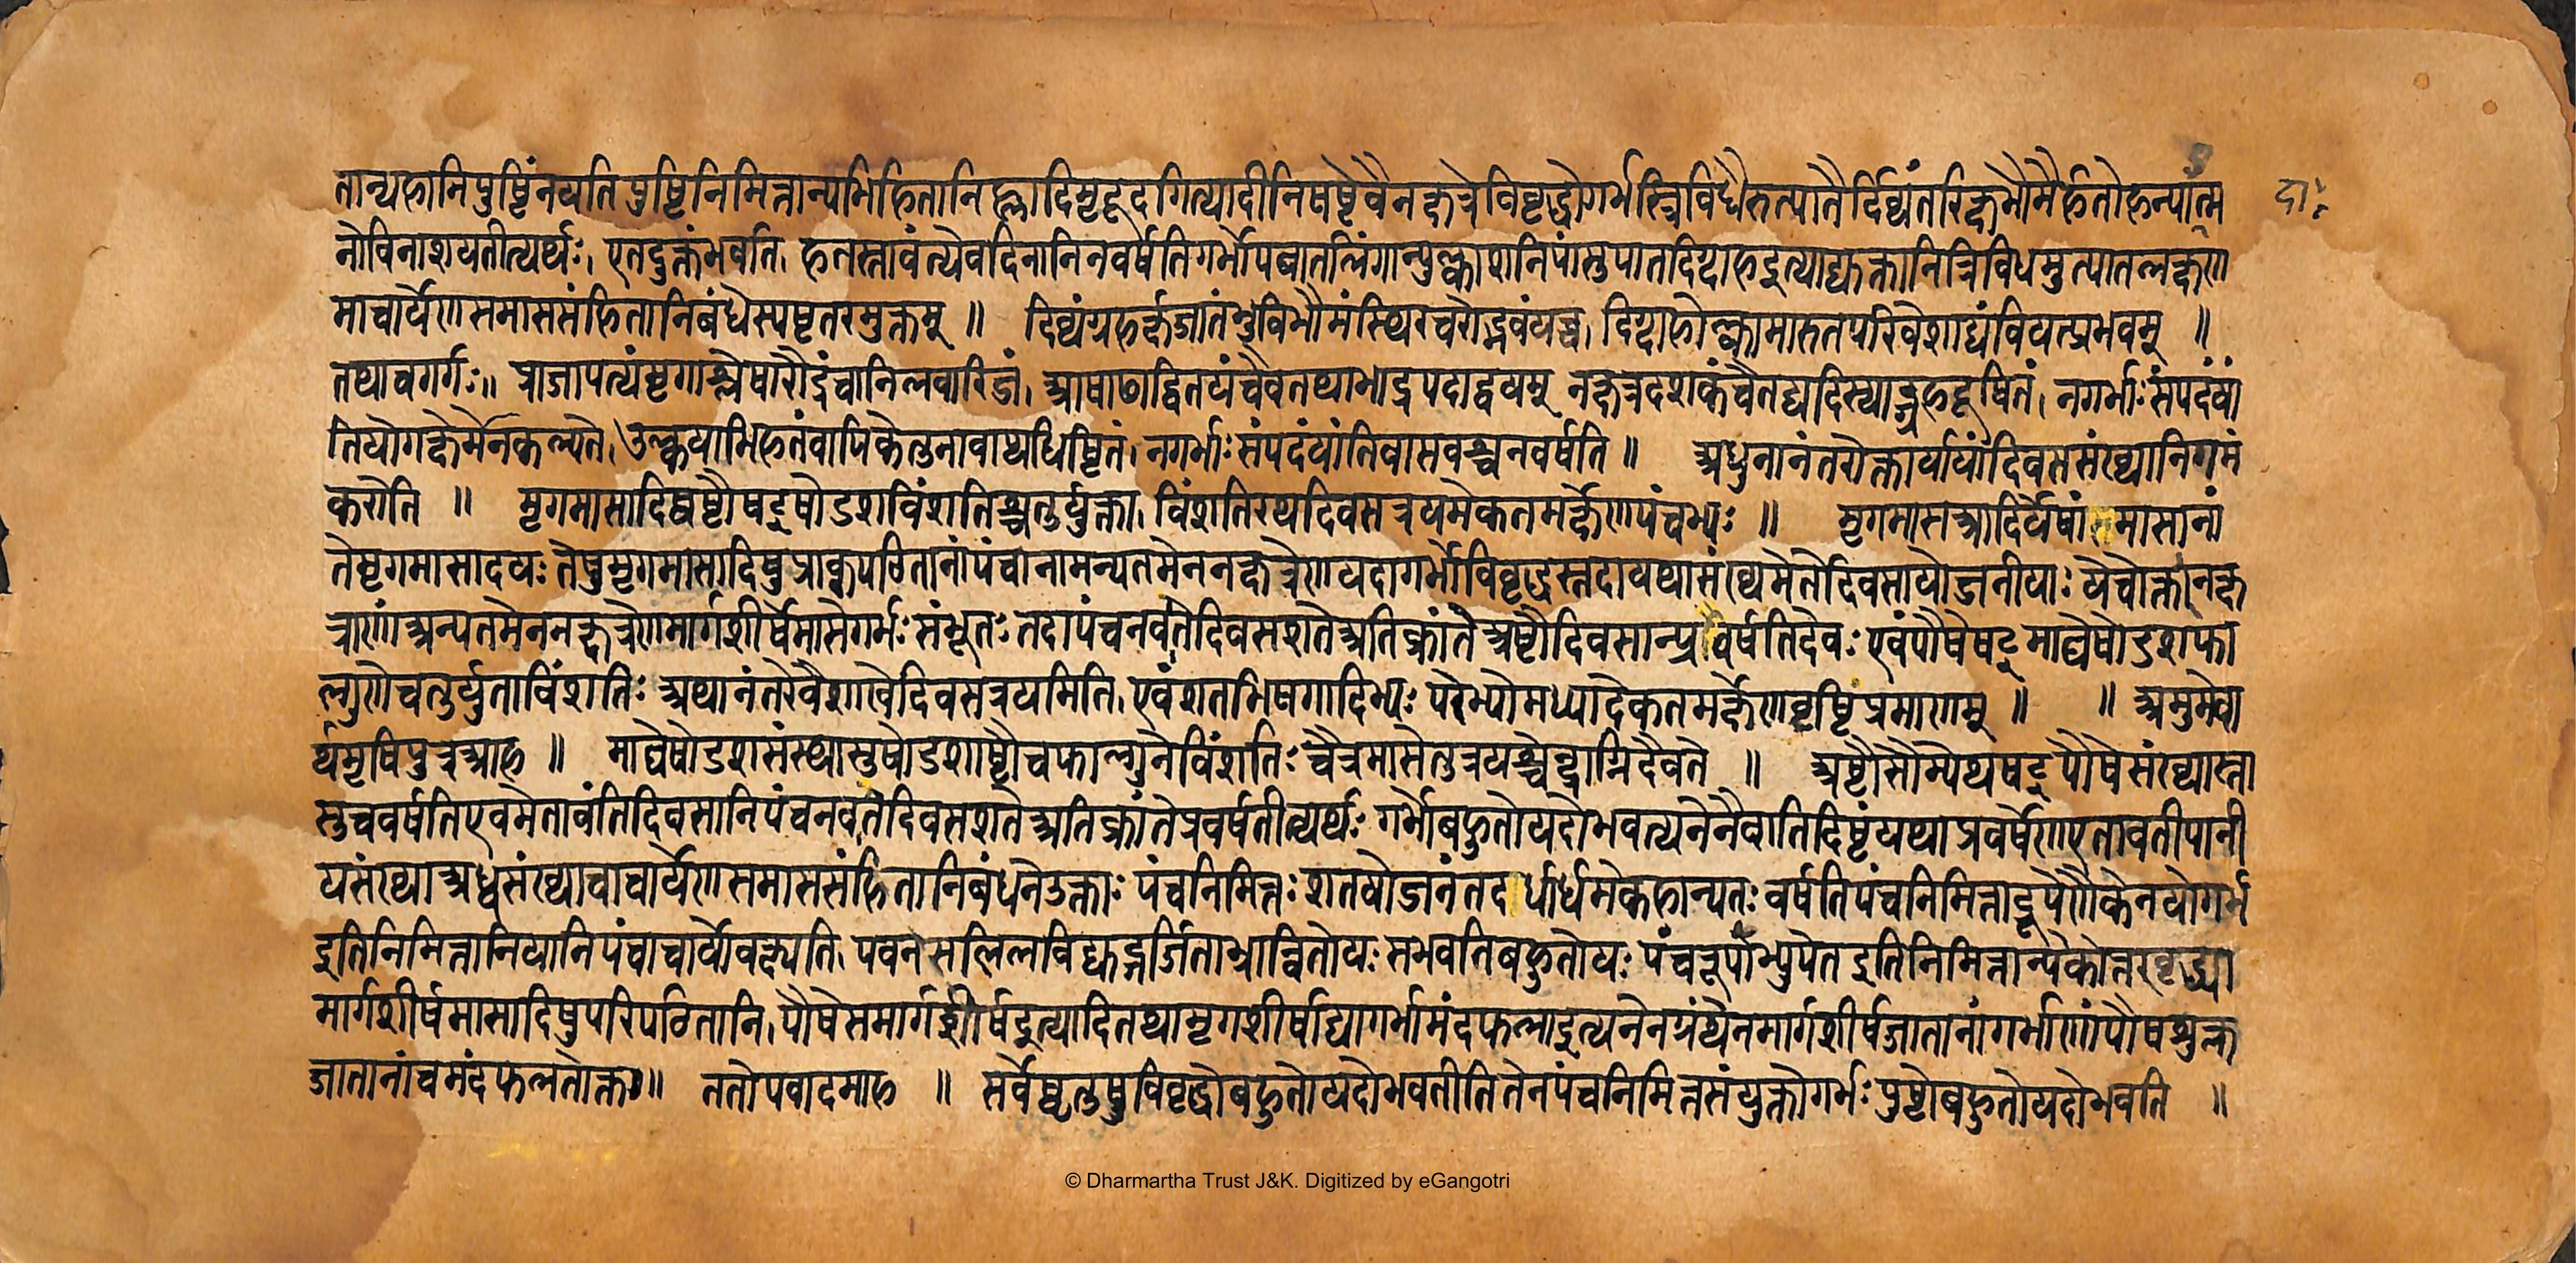 तान्यहानिपुष्टिंनयतिपुष्टिनिमित्तान्यभिहितानिह्लादिमृदूदगित्यादीनिषष्टेवैनक्षत्रेविवृद्धोगर्भस्त्रिविधैरुत्पातैर्दिव्यंतरिक्षभौमैर्हतोहन्यात्म दा
नोविनाशयतीत्यर्थः। एतदुक्तंभवति। हतस्तावंत्येवदिनानिनवर्षतिगर्भोपघातलिंगान्युल्काशनिपांसुपातदिग्दाहइत्याद्युक्तानित्रिविधमुत्पातलक्षण
माचार्येणसमाससंहितानिबंधेस्पष्टतरमुक्तम् ॥ दिव्यंग्रहर्क्षजातंभुविभौमंस्थिरचरोद्भवंयच्च। दिग्दाहोल्कामारुतपरिवेशाद्यंवियत्प्रभवम् ॥
तथाचगर्गः॥ प्राजापत्यंमृगाश्लेषारौद्रंचानिलवारिजं। आषाढाद्वितयंचैवतथाभाद्रपदाद्वयम् नक्षत्रदशकंचैतद्यदिस्याद्ग्रहदूषितं। नगर्भाःसंपदंयां
तियोगक्षेमंनकल्पते। उल्कयाभिहतंवापिकेतुनावाप्यधिष्ठितं। नगर्भाःसंपदंयांतिवासवश्चनवर्षति ॥ अधुनानंतरोक्तार्यायांदिवससंख्यानिगमं
करोति ॥ मृगमासादिष्वष्टौषट्षोडशविंशतिश्चतुर्युक्ता। विंशतिरथदिवसत्रयमेकतमर्क्षेणपंचभ्यः ॥ मृगमासआदिर्येषांमासानां
तेमृगमासादयः तेषुमृगमासादिषुप्राक्पठितानांपंचानामन्यतमेननक्षत्रेणयदागर्भोविवृद्धस्तदायथासंख्यमेतेदिवसायोजनीयाः येचोक्तानक्ष
त्राणांअन्यतमेननक्षत्रेणमार्गशीर्षेमासेगर्भःसंभूतः तदापंचनवतेदिवसशतेअतिक्रांते अष्टौदिवसान्प्रवर्षतिदेवः एवंपौषेषट्माघेषोडशफा
ल्गुणेचतुर्युताविंशतिः अथानंतरेवैशाखेदिवसत्रयमिति। एवंशतभिषगादिभ्यः परेभ्योमध्यादेकतमर्क्षेणवृष्टिंप्रमाणम् ॥ ॥ अमुमेवा
र्थमृषिपुत्रआह ॥ माघेषोडशसंस्थास्तुषोडशाष्टौचफाल्गुनेविंशतिः चैत्रमासेतुत्रयश्चेन्द्राग्निदैवते ॥ अष्टौसौम्येथषट्पौषेसंख्यास्ता
स्तुचवर्षतिएवमेतावंतिदिवसानिपंचनवतेदिवसशतेअतिक्रांतेप्रवर्षतीत्यर्थः गर्भोबहुतोयदोभवत्यनेनैवातिदिष्टंयथाप्रवर्षेणएतावतीपानी
यसंख्याअध्वसंख्याचाचार्येणसमाससंहितानिबंधनेउक्ताः पंचनिमित्तः शतयोजनंतदर्धार्धमेकहान्यतः वर्षतिपंचनिमित्ताद्रूपेणैकेनयोगर्भ
इतिनिमित्तानियानिपंचाचार्योवक्ष्यति। पवनसलिलविद्युद्गर्जिताभ्रान्वितोयः सभवतिबहुतोयः पंचरूपाभ्युपेत इतिनिमित्तान्येकोत्तरवृद्ध्या
मार्गशीर्षमासादिषुपरिपठितानि। पौषेसमार्गशीर्षइत्यादितथामृगशीर्षाद्यागर्भामंदफलाइत्यनेनग्रंथेनमार्गशीर्षजातानांगर्भाणांपौषशुक्ल
जातानांचमंदफलतोक्ता॥ ततोपवादमाह ॥ सर्वेष्वृतुषुविवृद्धोबहुतोयदोभवतीतितेनपंचनिमित्तसंयुक्तोगर्भः पुष्टोबहुतोयदोभवति ॥
© Dharmartha Trust J&K. Digitized by eGangotri